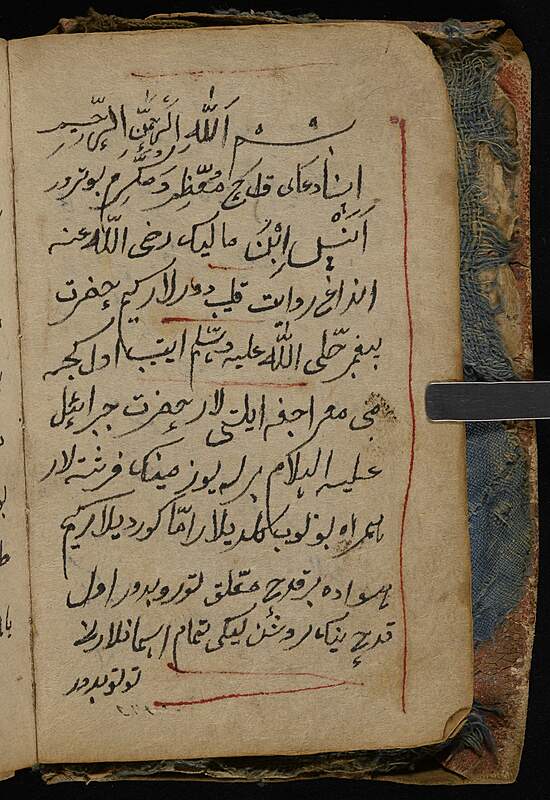 بسم الله الرحمن الرحيم
اسناد دعای قدح معظم و مکرم بوترور
انس ابن مالیک رضی الله عنه
انداغ روایت قلیب دورلار کیم حضرت
پیغمبر صلی الله علیه وسلم ایتیب اول کجه
منی معراجغه ایلتی لار حضرت جبرائل
علیه السلام برله یوز مینک فرشته لار
همراه بولوب کلدیلار اما کوردیلار کیم
هواده بر قدح معلق توروبدور اول
قدح نینک روشن لیکی تمام اسمانلارنی
توتوبدور